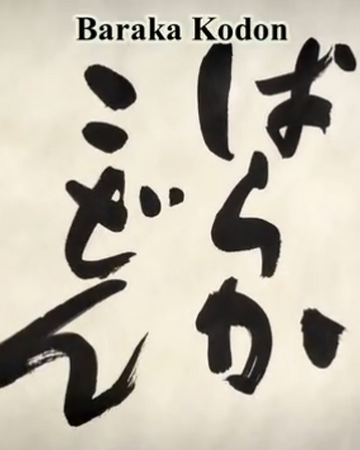 Baraka Kodon
ばらか
こどん